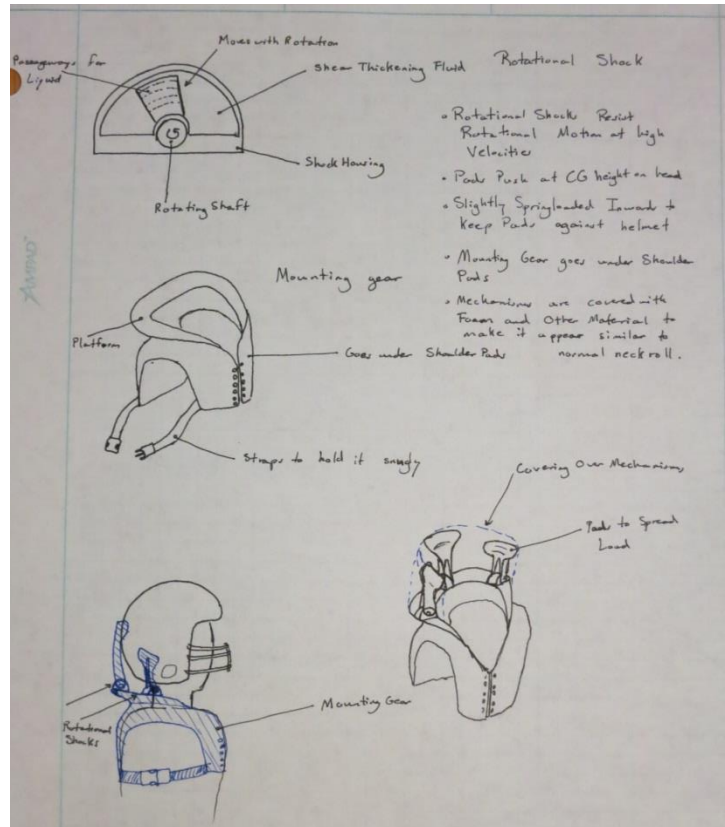 Rotational Shock
Moves with Rotation
Passageways for
Liquid
Shear Thickening Fluid
Shock Housing
Rotating Shaft
• Rotational Shocks Resist
Rotational Motion at high
Velocities
• Pads Push at CG height on head
• Slightly Springloaded Inwards to
Keep Pads against helmet
• Mounting Gear goes under Shoulder
Pads
• Mechanisms are covered with
Foam and Other Material to
make it appear similar to
normal neck roll.
AMPAD
Mounting gear
Platform
Goes under Shoulder Pads
Straps to hold it snugly
Covering Over Mechanisms
Pads to Spread
Load
Rotational
Shocks
Mounting Gear